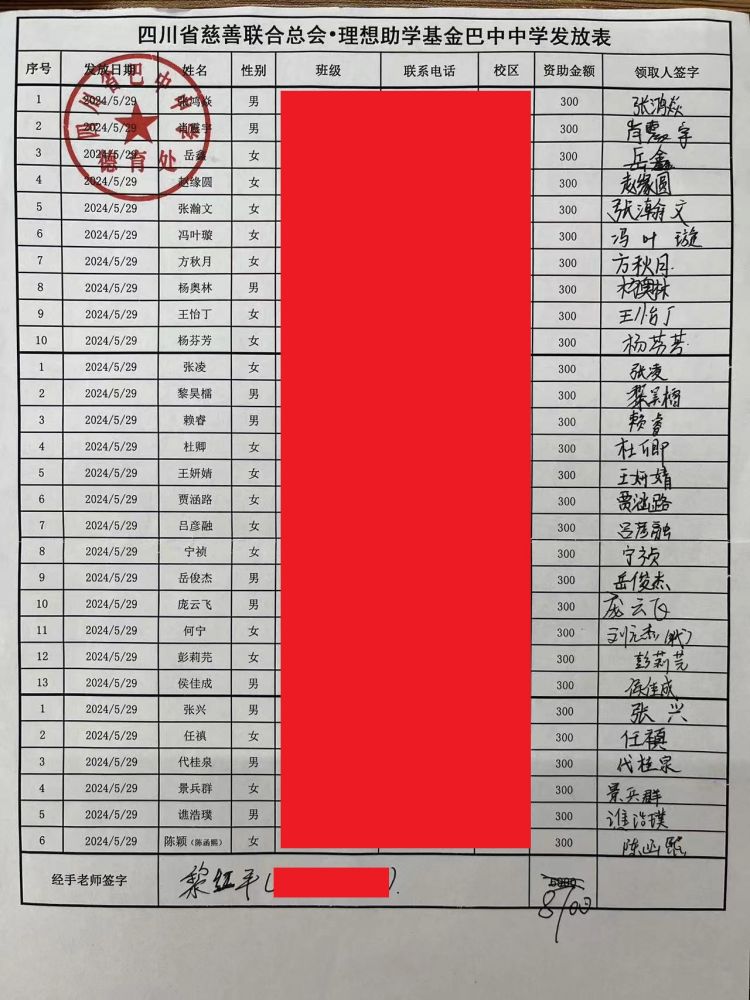 四川省慈善联合总会•理想助学基金巴中中学发放表
序号 发放日期 姓名 性别 班级 联系电话 校区 资助金额 领取人签字
四川省巴中中学
德育处
1 2024/5/29 张鸿焱 男 300 张鸿焱
2 2024/5/29 肖震宇 男 300 肖震宇
3 2024/5/29 岳鑫 女 300 岳鑫
4 2024/5/29 赵缘圆 女 300 赵缘圆
5 2024/5/29 张瀚文 女 300 张瀚文
6 2024/5/29 冯叶璇 女 300 冯叶璇
7 2024/5/29 方秋月 女 300 方秋月
8 2024/5/29 杨奥林 男 300 杨奥林
9 2024/5/29 王怡丁 女 300 王怡丁
10 2024/5/29 杨芬芳 女 300 杨芬芳
1 2024/5/29 张凌 女 300 张凌
2 2024/5/29 黎昊檑 男 300 黎昊檑
3 2024/5/29 赖睿 男 300 赖睿
4 2024/5/29 杜卿 女 300 杜卿
5 2024/5/29 王妍婧 女 300 王妍婧
6 2024/5/29 贾涵路 女 300 贾涵路
7 2024/5/29 吕彦融 女 300 吕彦融
8 2024/5/29 宁祯 女 300 宁祯
9 2024/5/29 岳俊杰 男 300 岳俊杰
10 2024/5/29 庞云飞 男 300 庞云飞
11 2024/5/29 何宁 女 300 刘元杰(代)
12 2024/5/29 彭莉芫 女 300 彭莉芫
13 2024/5/29 侯佳成 男 300 侯佳成
1 2024/5/29 张兴 男 300 张兴
2 2024/5/29 任禛 女 300 任禛
3 2024/5/29 代桂泉 男 300 代桂泉
4 2024/5/29 景兵群 女 300 景兵群
5 2024/5/29 谯浩璞 男 300 谯浩璞
6 2024/5/29 陈颖(陈函熙) 女 300 陈函熙
经手老师签字 黎红平( ). 8700